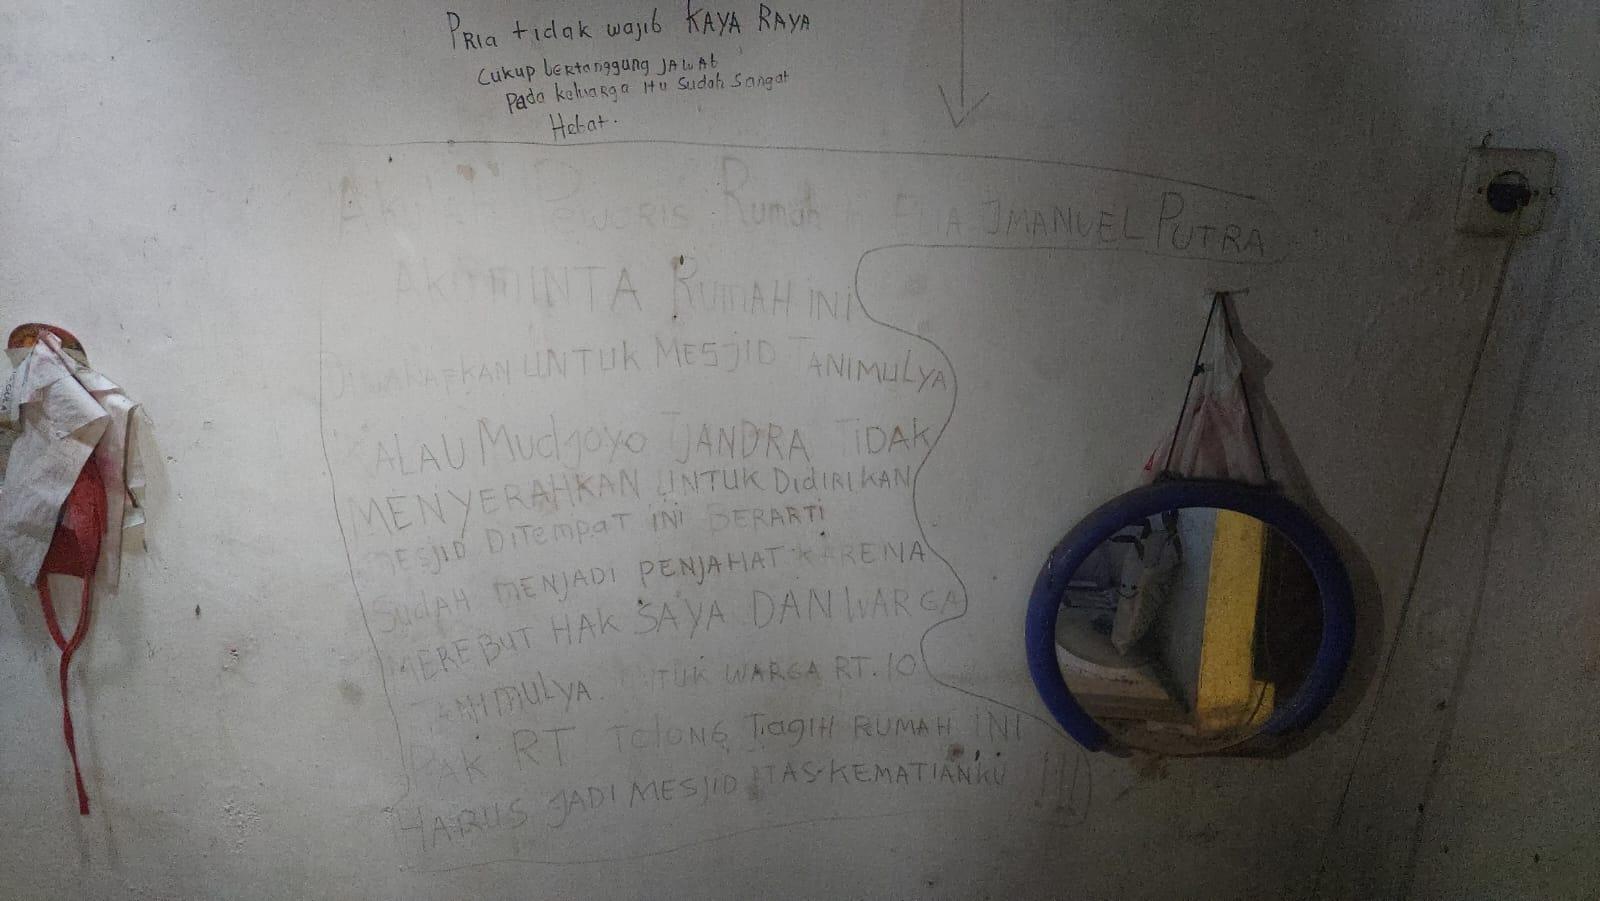 PRIA tidak wajib KAYA RAYA
Cukup bertanggung JAWAb
Pada keluarga itu sudah sangat
Hebat.
Pewaris Rumah IMANUEL PUTRA
AKU MINTA RUMAH INI
DIWAKAFKAN UNTUK MESJID TANIMULYA
KALAU Mudjoyo TJANDRA TIDAK
MENYERAHKAN UNTUK DIDIRIKAN
MESJID DITEMPAT INI BERARTI
SUDAH MENJADI PENJAHAT KARENA
MEREBUT HAK SAYA DAN WARGA
TANIMULYA. UNTUK WARGA RT.10
PAK RT TOLONG TAGIH RUMAH INI
HARUS JADI MESJID ATAS KEMATIANKU !!!